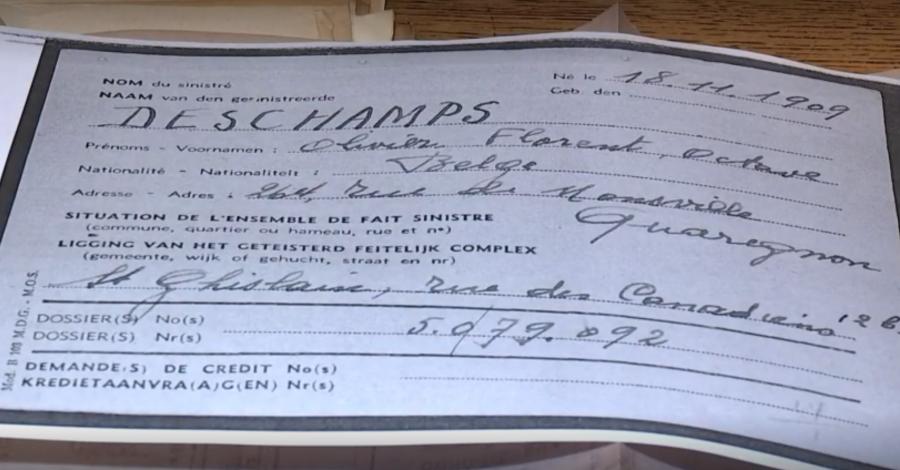 NOM du sinistré
NAAM van den geteisterde
Né le 18.11.1909
Geb. den
DESCHAMPS
Prénoms - Voornamen : Olivier Florent, Octave
Nationalité - Nationaliteit : Belge
Adresse - Adres : 264, rue de Monsville
Quaregnon
SITUATION DE L'ENSEMBLE DE FAIT SINISTRE
(commune, quartier ou hameau, rue et n°)
LIGGING VAN HET GETEISTERD FEITELIJK COMPLEX
(gemeente, wijk of gehucht, straat en nr)
St Ghislain, rue des Canadiens 12
DOSSIER(S) No(s)
DOSSIER(S) Nr(s) 5.079.892
DEMANDE(S) DE CREDIT No(s)
KREDIETAANVRA(A)G(EN) Nr(s)
Mod. B 100 M.D.G. - M.O.S.